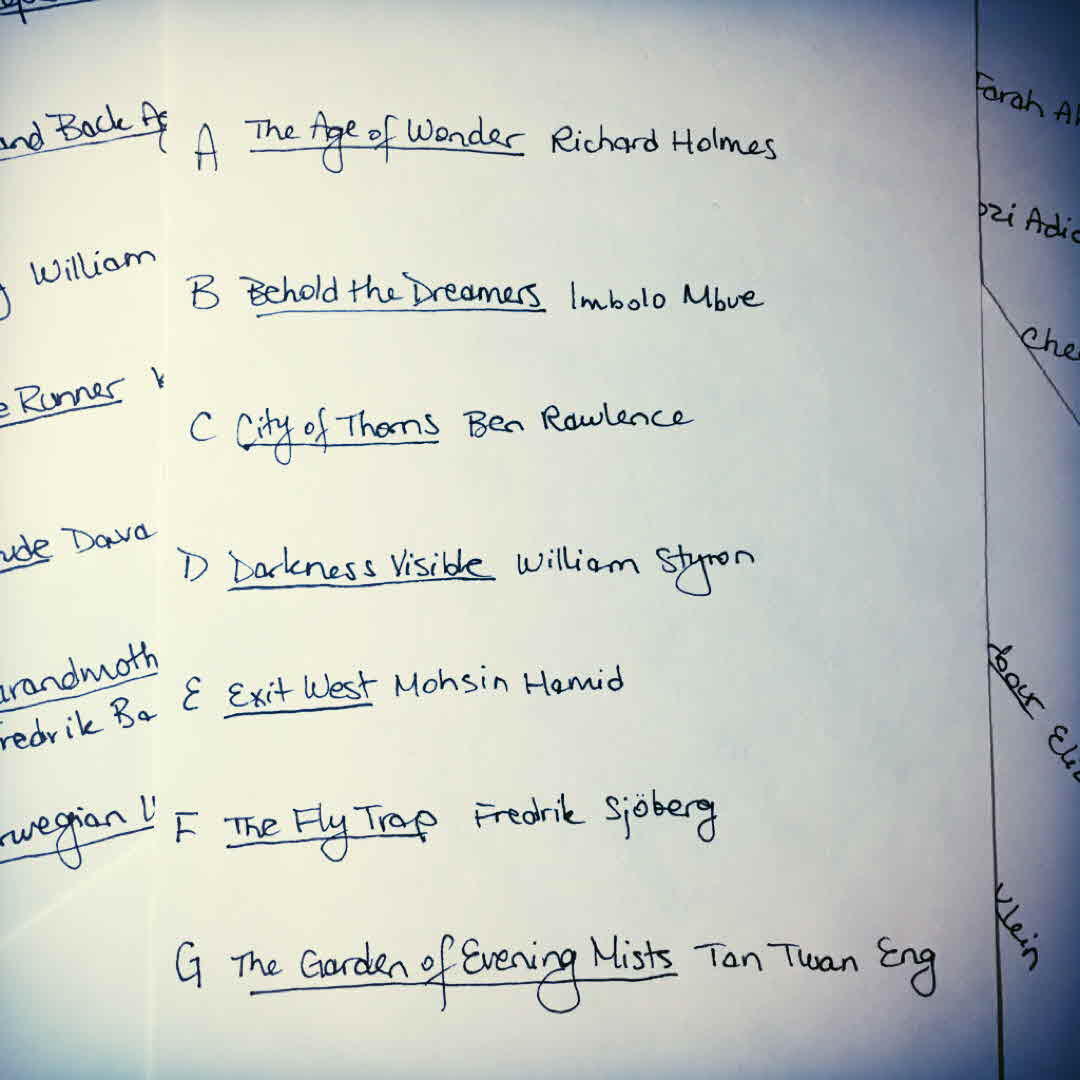 and Back
A The Age of Wonder Richard Holmes
Farah
Adic
William
B Behold the Dreamers Imbolo Mbue
Che
Runner
C City of Thorns Ben Rawlence
ude Dava
D Darkness Visible William Styron
randmoth
E Exit West Mohsin Hamid
redrik Ba
Eliz
rwegian
F The Fly Trap Fredrik Sjöberg
klein
G The Garden of Evening Mists Tan Twan Eng